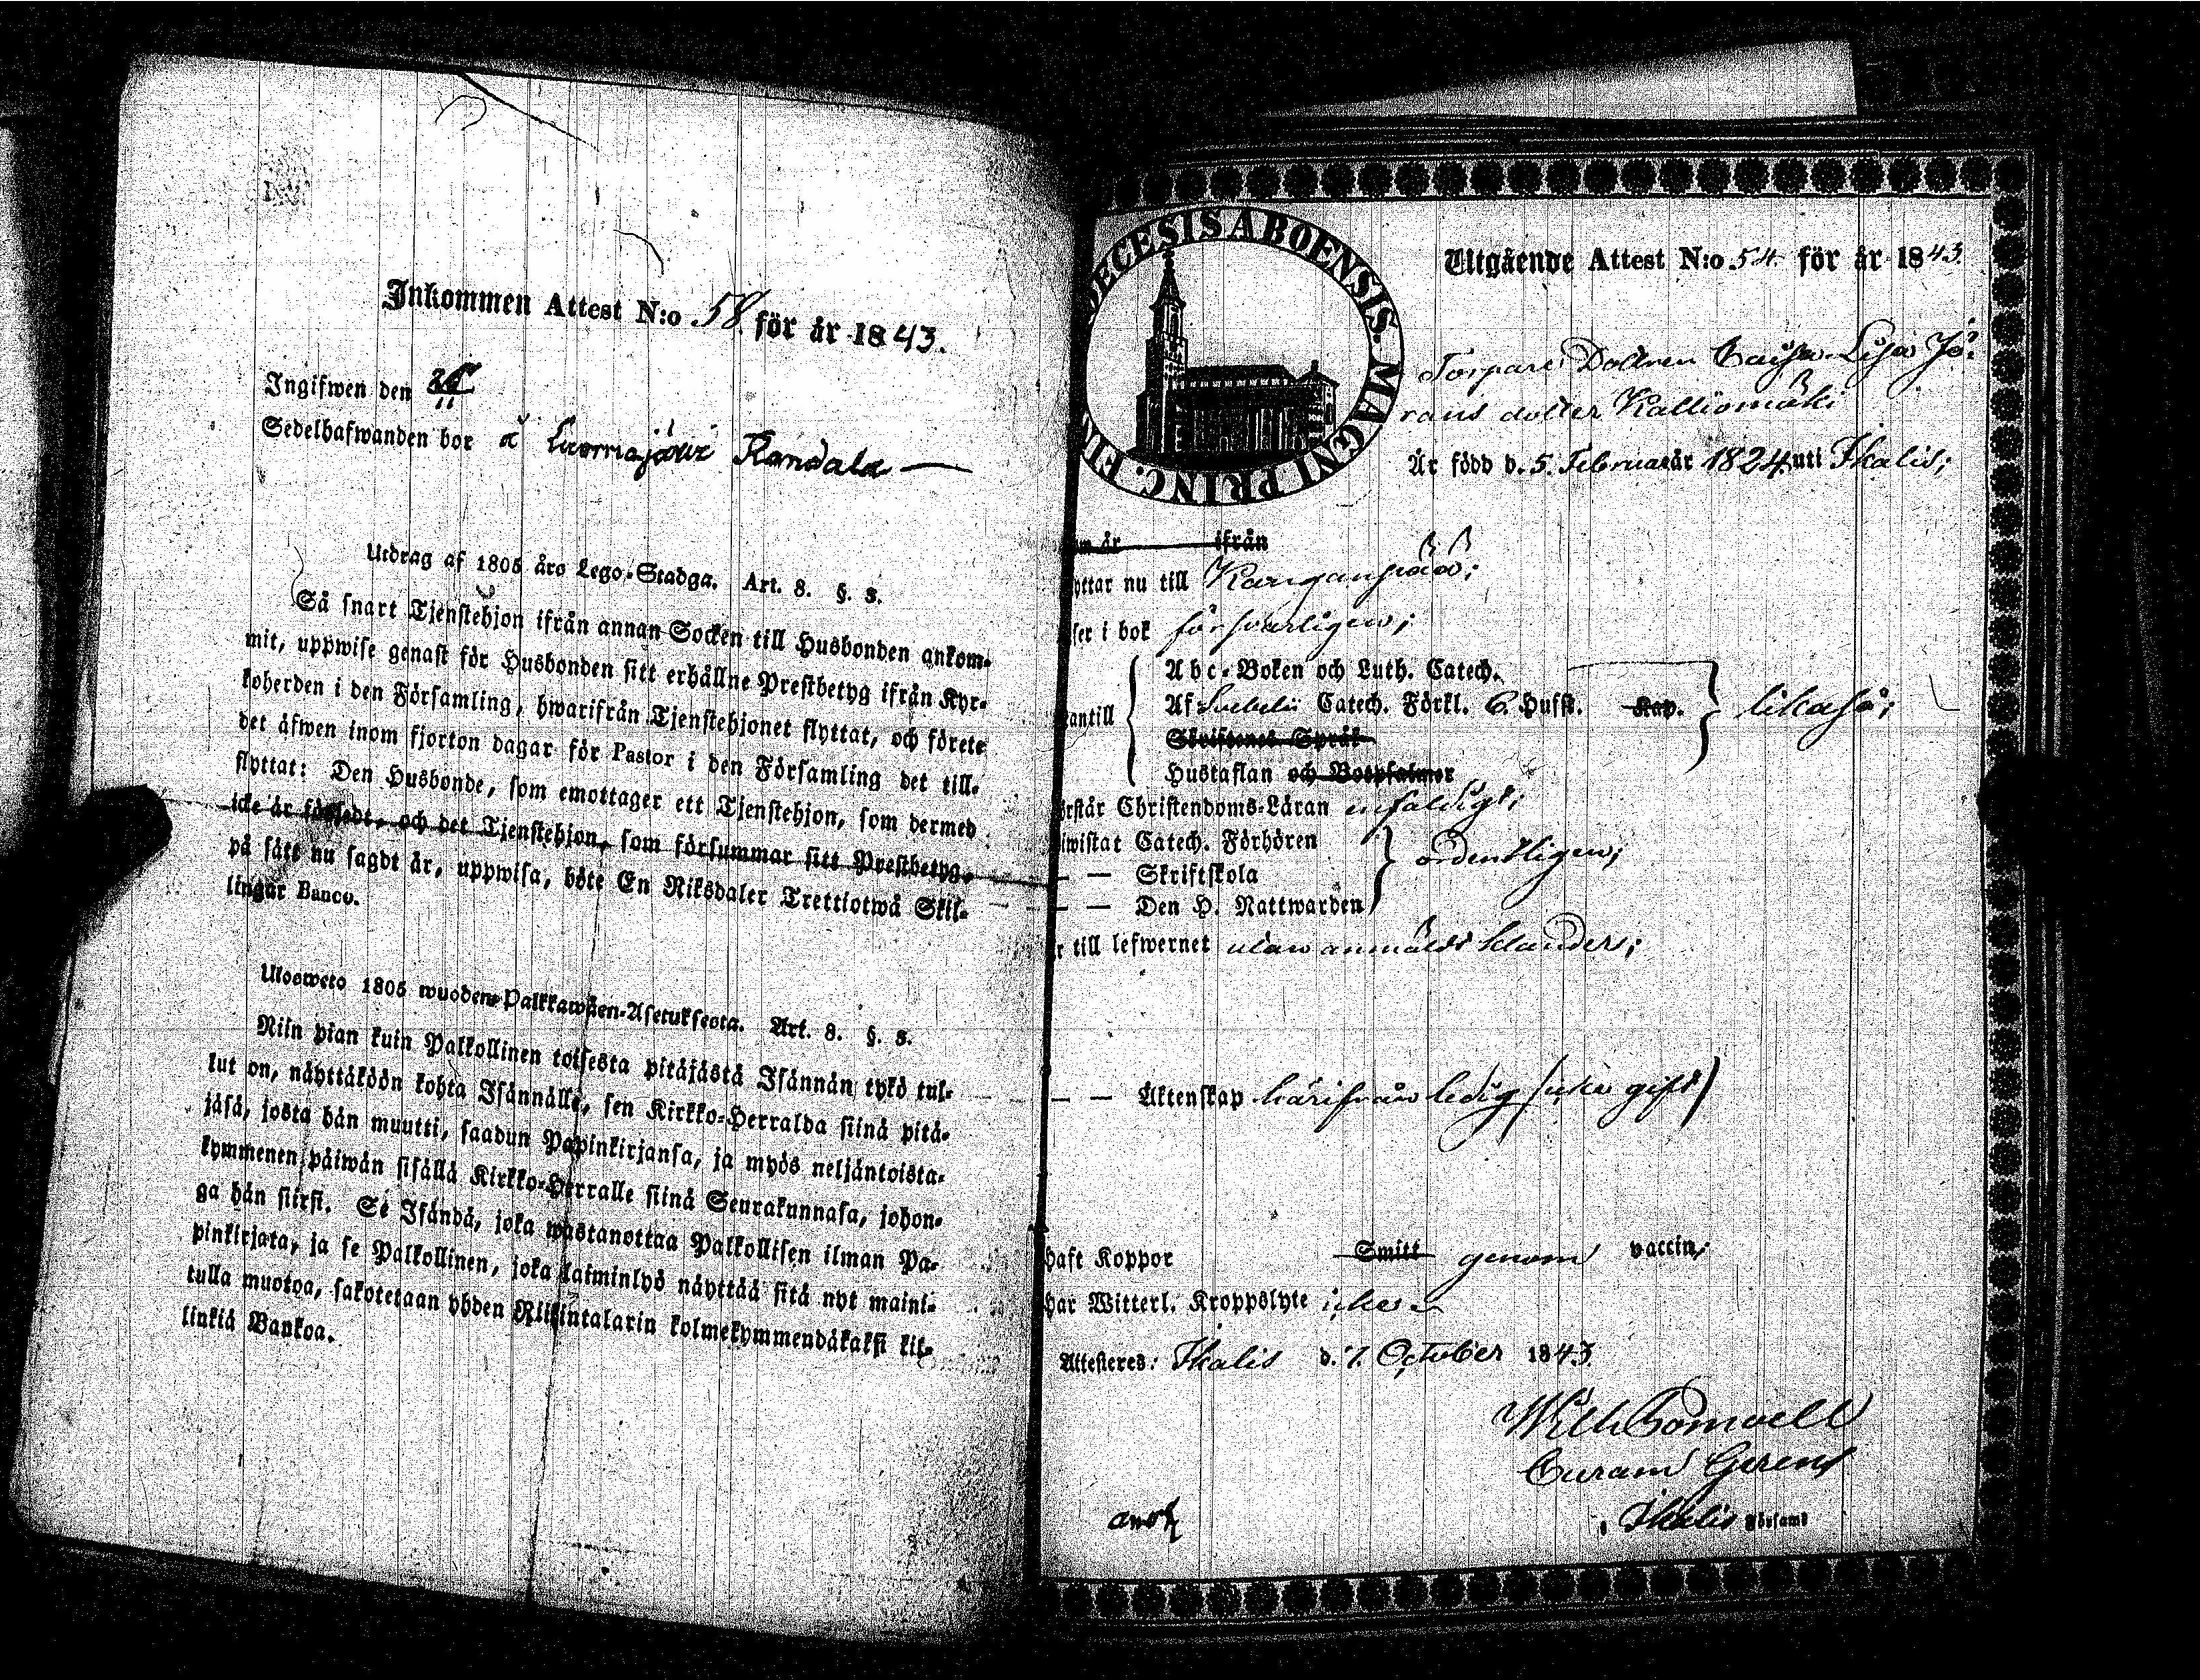 Inkommen Attest N:o 58 för år 1843.
Ingifwen den
Sedelhafwanden bor å Luomajärvi Randala
Utdrag af 1805 års Lego-Stadga. Art. 8. §. 3.
Så snart Tjenstehjon ifrån annan Socken till Husbonden ankom-
mit, uppwise genast för Husbonden sitt erhållne Prestbetyg ifrån Kyr-
koherden i den Församling, hwarifrån Tjenstehjonet flyttat, och förete
det äfwen inom fjorton dagar för Pastor i den Församling det till-
flyttat: Den Husbonde, som emottager ett Tjenstehjon, som dermed
icke är försedt, och det Tjenstehjon, som försummar sitt Prestbetyg,
på sätt nu sagdt är, uppwisa, böte En Riksdaler Trettiotwå Skil-
lingar Banco.
Ulosweto 1805 wuoden Palkkawäen-Asetuksesta. Art. 8. §. 3.
Niin pian kuin Palkollinen toisesta pitäjästä Isännän tykö tul-
lut on, näyttäköön kohta Isännälle, sen Kirkko-Herralda siinä pitä-
jäsä, josta hän muutti, saadun Papinkirjansa, ja myös neljäntoista-
kymmenen päiwän sisällä Kirkko-Herralle siinä Seurakunnasa, johon-
ga hän siirsi. Se Isändä, joka wastanottaa Palkollisen ilman Pa-
pinkirjata, ja se Palkollinen, joka laiminlyö näyttää sitä nyt maini-
tulla muotoa, sakotetaan yhden Riikintalarin kolmekymmendäkaksi kil-
linkiä Bankoa.
DIOECESIS ABOENSIS. MAGNI PRINC. FIN
Utgående Attest N:o 54 för år 1843.
Torpare Dottren Cajsa Lisa Jö-
rans dotter Kalliomäki
Är född d. 5. Februar år 1824 uti Ikalis;
om år ifrån
yttar nu till Kanganpää;
ser i bok försvarligen;
Abc-Boken och Luth. Catech.
antill Af Svebelii Catech. Förkl. 6. Hufst. Kap. likaså;
Skriftenes Språk
Hustaflan och Botpsalmer
örstår Christendoms-Läran enfaldigt;
iwistat Catech. Förhören
— Skriftskola ordentligen;
— — Den H. Nattwarden
r till lefwernet utan anmäldt klander;
— — Äktenskap härifrån ledig (icke gift)
haft Koppor Smitt genom vaccin;
har Witterl. Kroppslyte icke
Attesteres: Ikalis d. 7. October 1843.
Wilh.
Curam Gerens
i Ikalis Församl